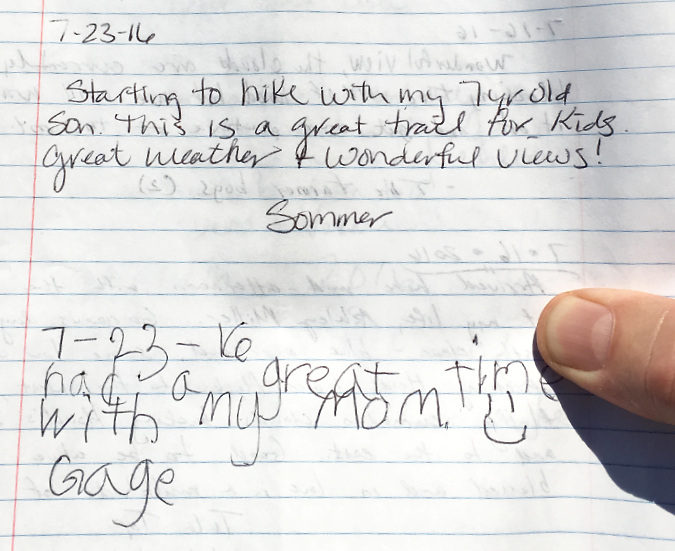 7-23-16
Starting to hike with my 7yr old
Son. This is a great trail for Kids.
Great weather & wonderful views!
Sommer
7-23-16
had a great time
with my mom.
Gage